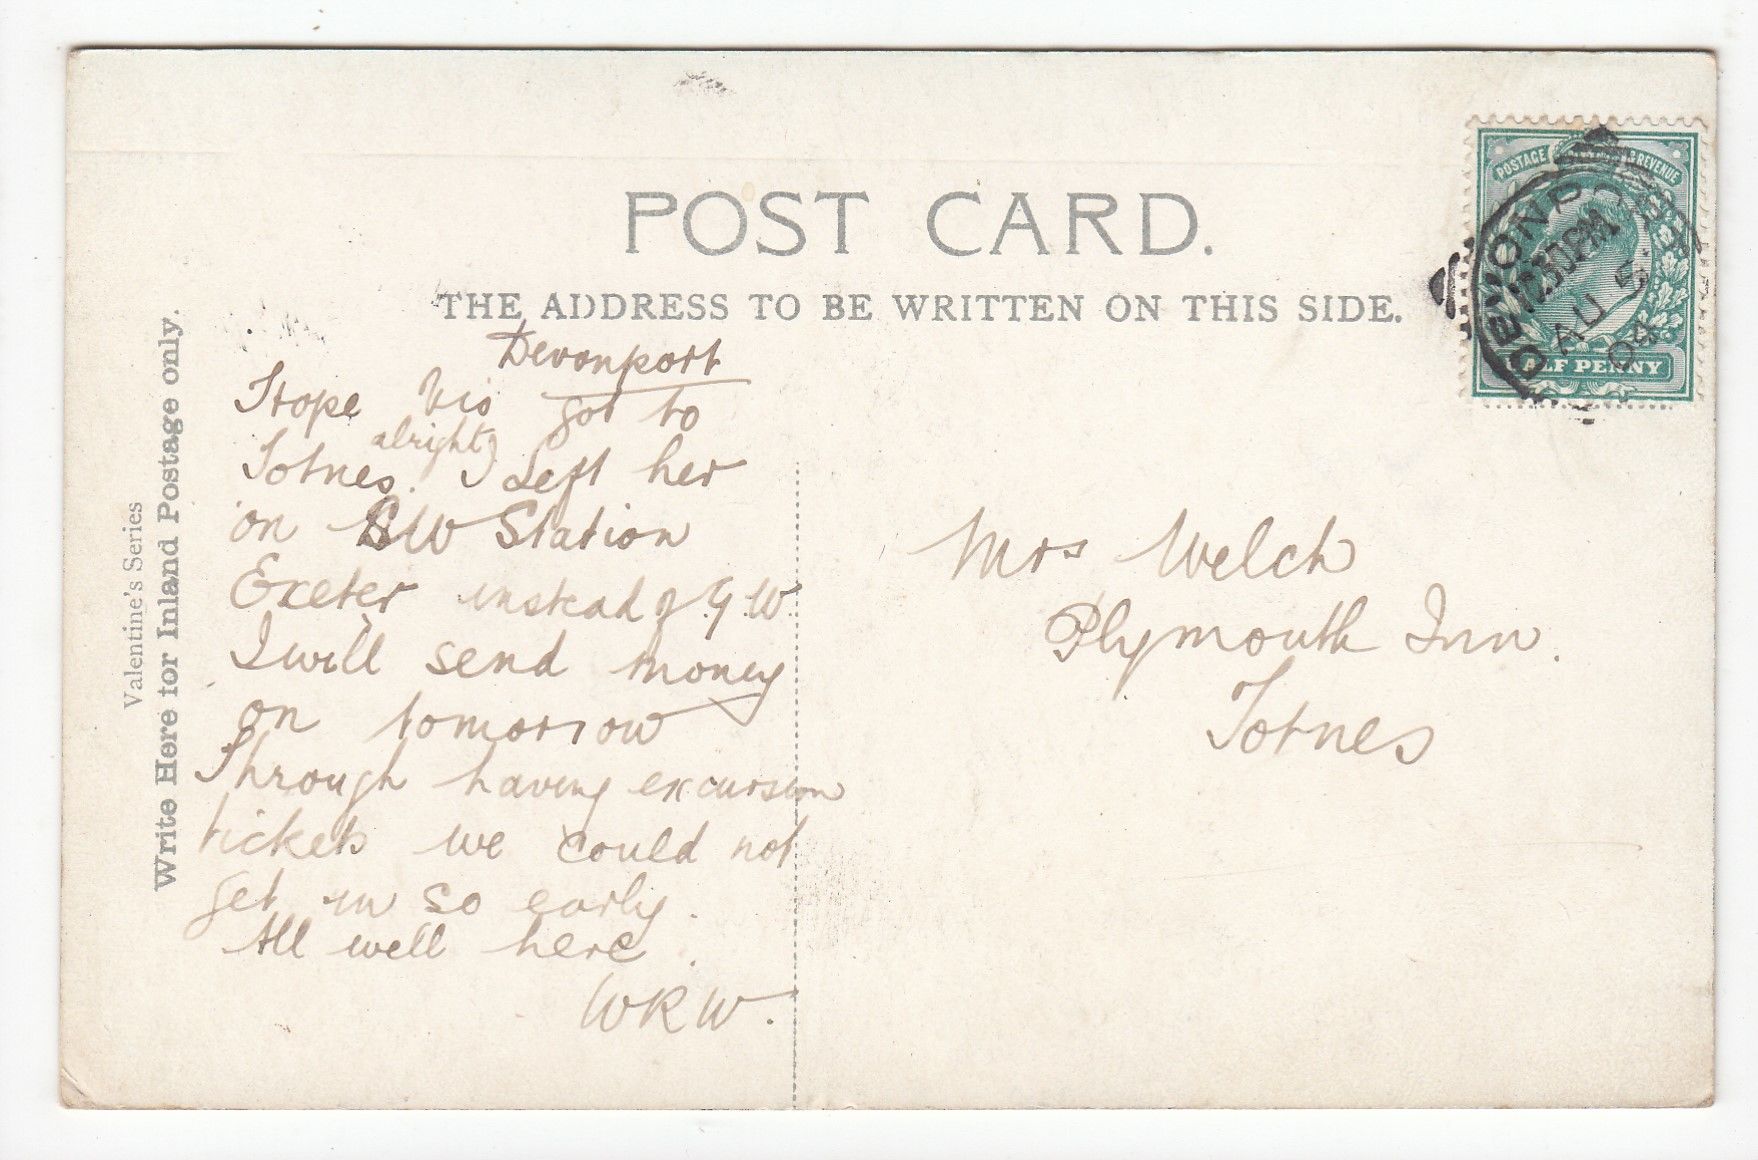 POST CARD.
THE ADDRESS TO BE WRITTEN ON THIS SIDE.
Valentine's Series
Write Here for Inland Postage only.
POSTAGE & REVENUE
HALF PENNY
DEVONPORT
12.30PM
AU 5
04
Devonport
Hope Vio got to
Totnes alright. I Left her
on SW Station
Exeter instead of G.W.
I will send money
on tomorrow
Through having excursion
tickets we could not
get in so early.
All well here.
WRW.
Mrs Welch
Plymouth Inn.
Totnes